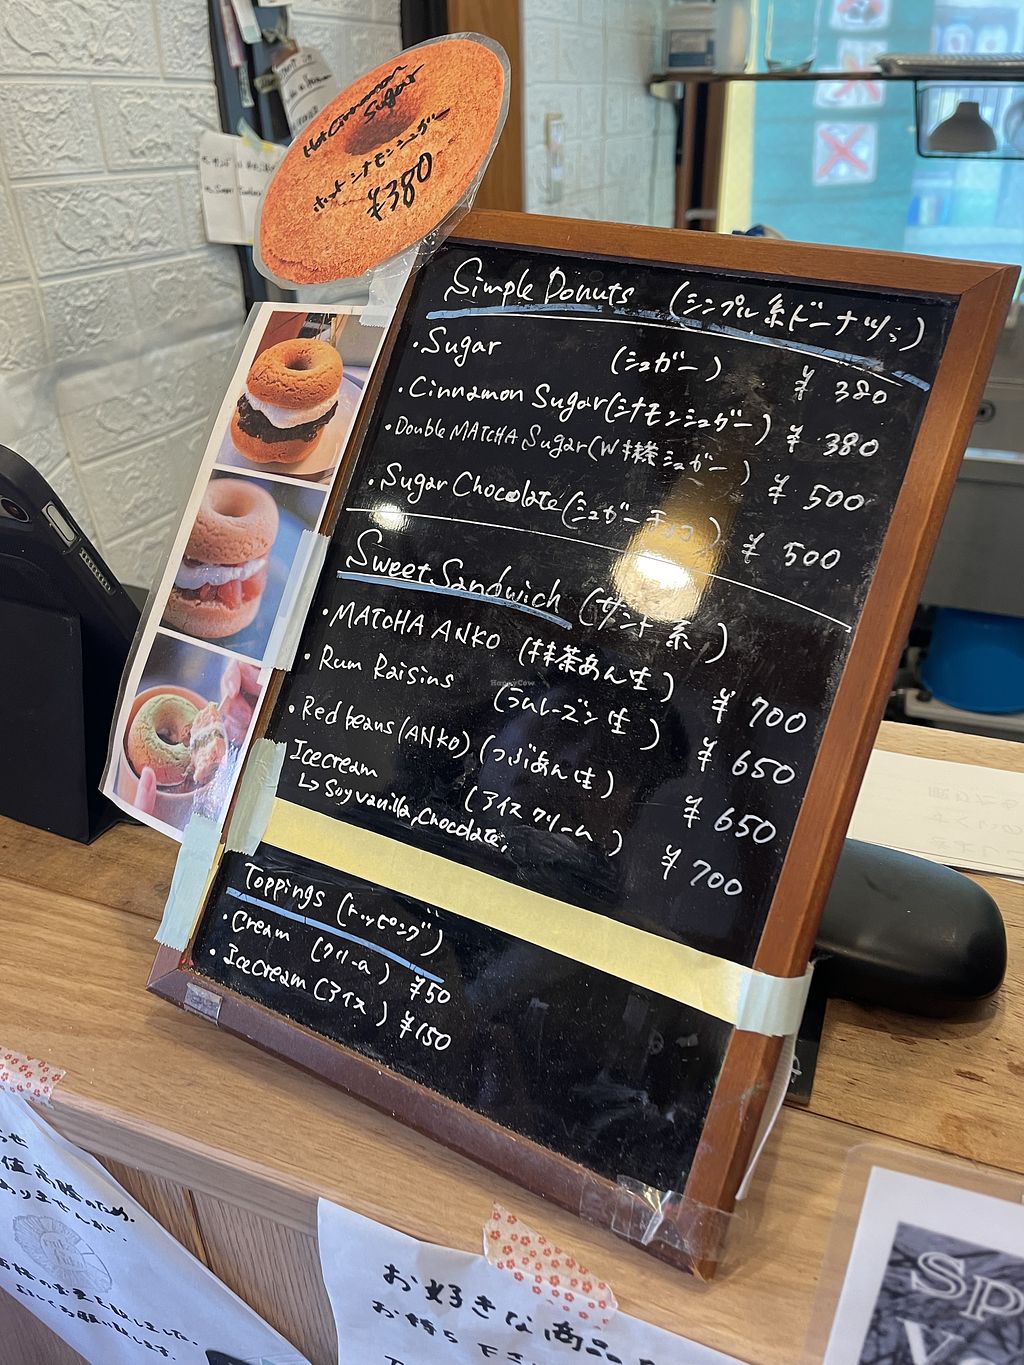 Hot Cinnamon
Sugar
ホットシナモンシュガー
¥380
Simple Donuts (シンプル系ドーナツ)
・Sugar (シュガー) ¥380
・Cinnamon Sugar (シナモンシュガー) ¥380
・Double MATCHA Sugar (W抹茶シュガー) ¥500
・Sugar Chocolate (シュガーチョコ) ¥500
Sweet Sandwich (サンド系)
・MATCHA ANKO (抹茶あん生) ¥700
・Rum Raisins (ラムレーズン生) ¥650
・Redbeans (ANKO) (つぶあん生) ¥650
Icecream (アイスクリーム) ¥700
↳ Soy vanilla, chocolate,
Toppings (トッピング)
・Cream (クリーム) ¥50
・Icecream (アイス) ¥150
HappyCow
お好きな商品
お持ち下さい
Sp